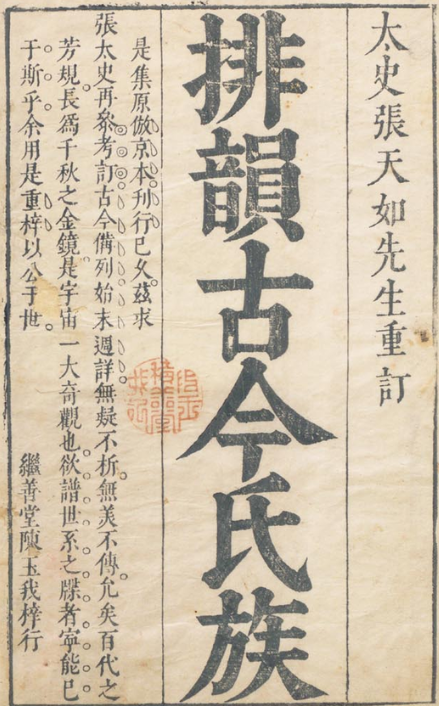 太史張天如先生重訂
排韻古今氏族
是集原倣京本刊行已久茲求
張太史再參考訂古今備列始末週詳無疑不析無美不傳允矣百代之
芳規長爲千秋之金鏡是宇宙一大奇觀也欲譜世系之牒者寧能已
于斯乎余用是重梓以公于世
繼善堂陳玉我梓行